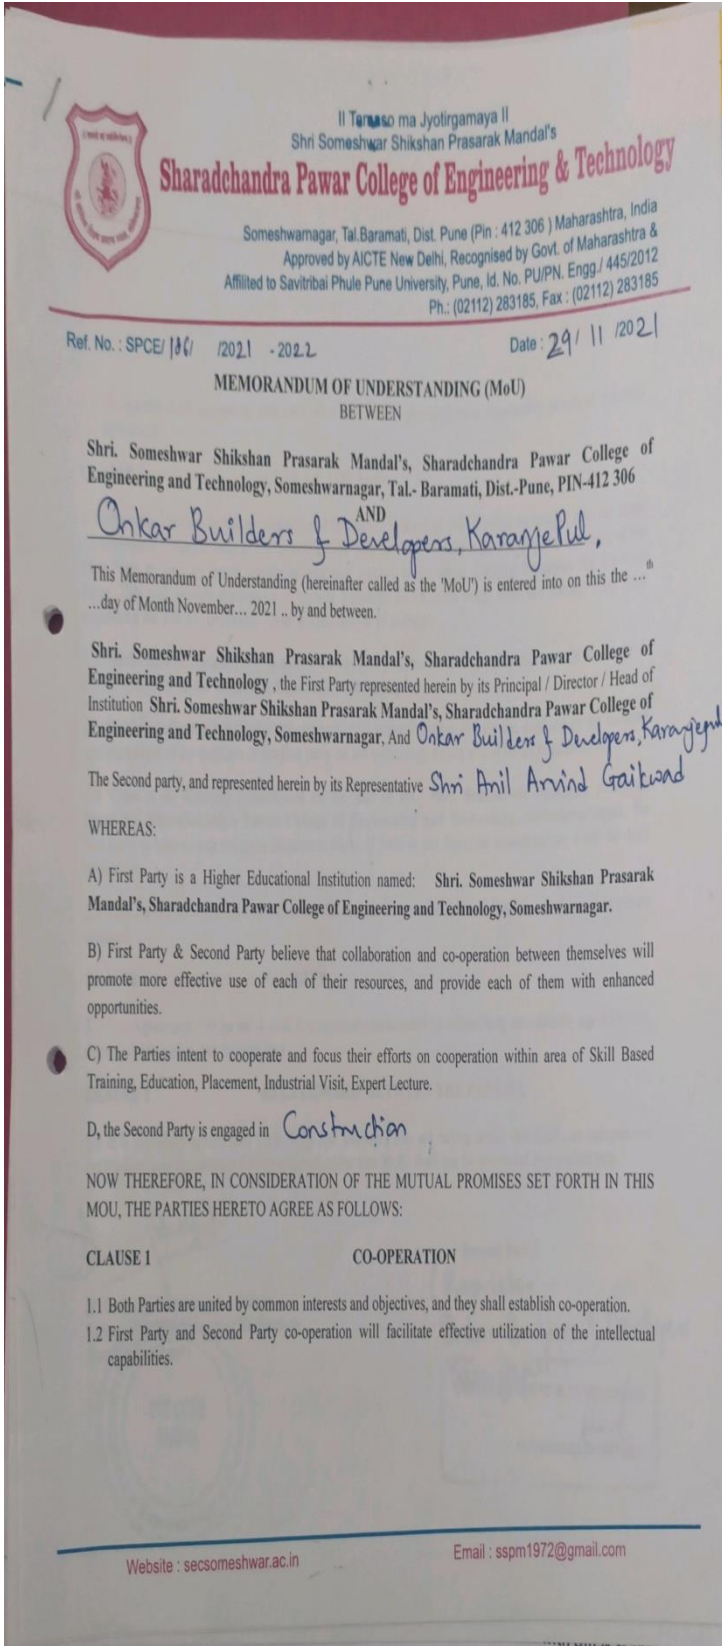 II Tamaso ma Jyotirgamaya II
Shri Someshwar Shikshan Prasarak Mandal's
Sharadchandra Pawar College of Engineering & Technology
Someshwarnagar, Tal.Baramati, Dist. Pune (Pin : 412 306 ) Maharashtra, India
Approved by AICTE New Delhi, Recognised by Govt. of Maharashtra &
Affilited to Savitribai Phule Pune University, Pune, Id. No. PU/PN. Engg./ 445/2012
Ph.: (02112) 283185, Fax : (02112) 283185
Ref. No. : SPCE/186/ /2021 - 2022
Date : 29/ 11 /2021
MEMORANDUM OF UNDERSTANDING (MoU)
BETWEEN
Shri. Someshwar Shikshan Prasarak Mandal's, Sharadchandra Pawar College of
Engineering and Technology, Someshwarnagar, Tal.- Baramati, Dist.-Pune, PIN-412 306
AND
Onkar Builders & Developers, KaranjePul,
This Memorandum of Understanding (hereinafter called as the 'MoU') is entered into on this the ...th
...day of Month November... 2021 .. by and between.
Shri. Someshwar Shikshan Prasarak Mandal's, Sharadchandra Pawar College of
Engineering and Technology , the First Party represented herein by its Principal / Director / Head of
Institution Shri. Someshwar Shikshan Prasarak Mandal's, Sharadchandra Pawar College of
Engineering and Technology, Someshwarnagar, And Onkar Builders & Developers, Karanjepul
The Second party, and represented herein by its Representative Shri Anil Arvind Gaikwad
WHEREAS:
A) First Party is a Higher Educational Institution named: Shri. Someshwar Shikshan Prasarak
Mandal's, Sharadchandra Pawar College of Engineering and Technology, Someshwarnagar.
B) First Party & Second Party believe that collaboration and co-operation between themselves will
promote more effective use of each of their resources, and provide each of them with enhanced
opportunities.
C) The Parties intent to cooperate and focus their efforts on cooperation within area of Skill Based
Training, Education, Placement, Industrial Visit, Expert Lecture.
D, the Second Party is engaged in Construction
NOW THEREFORE, IN CONSIDERATION OF THE MUTUAL PROMISES SET FORTH IN THIS
MOU, THE PARTIES HERETO AGREE AS FOLLOWS:
CLAUSE 1 CO-OPERATION
1.1 Both Parties are united by common interests and objectives, and they shall establish co-operation.
1.2 First Party and Second Party co-operation will facilitate effective utilization of the intellectual
capabilities.
Website : secsomeshwar.ac.in
Email : sspm1972@gmail.com